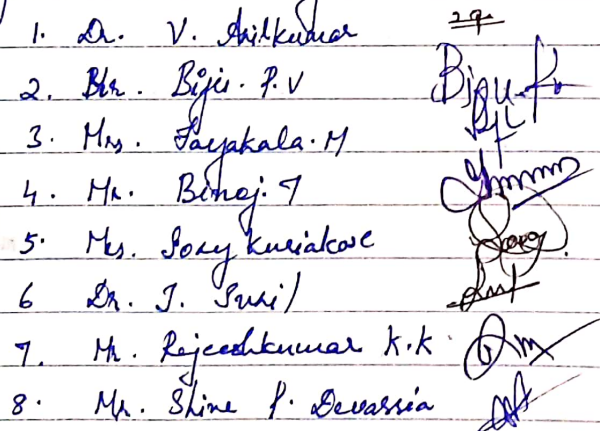 1. Dr. V. Anilkumar
2. Mr. Biju. P.V Biju.P.v
3. Mrs. Jayakala. M
4. Mr. Binoj. T
5. Mrs. Josy Kuriakose
6 Dr. J. Sunil
7. Mr. Rajeeshkumar K.K
8. Mr. Shine P. Devassia